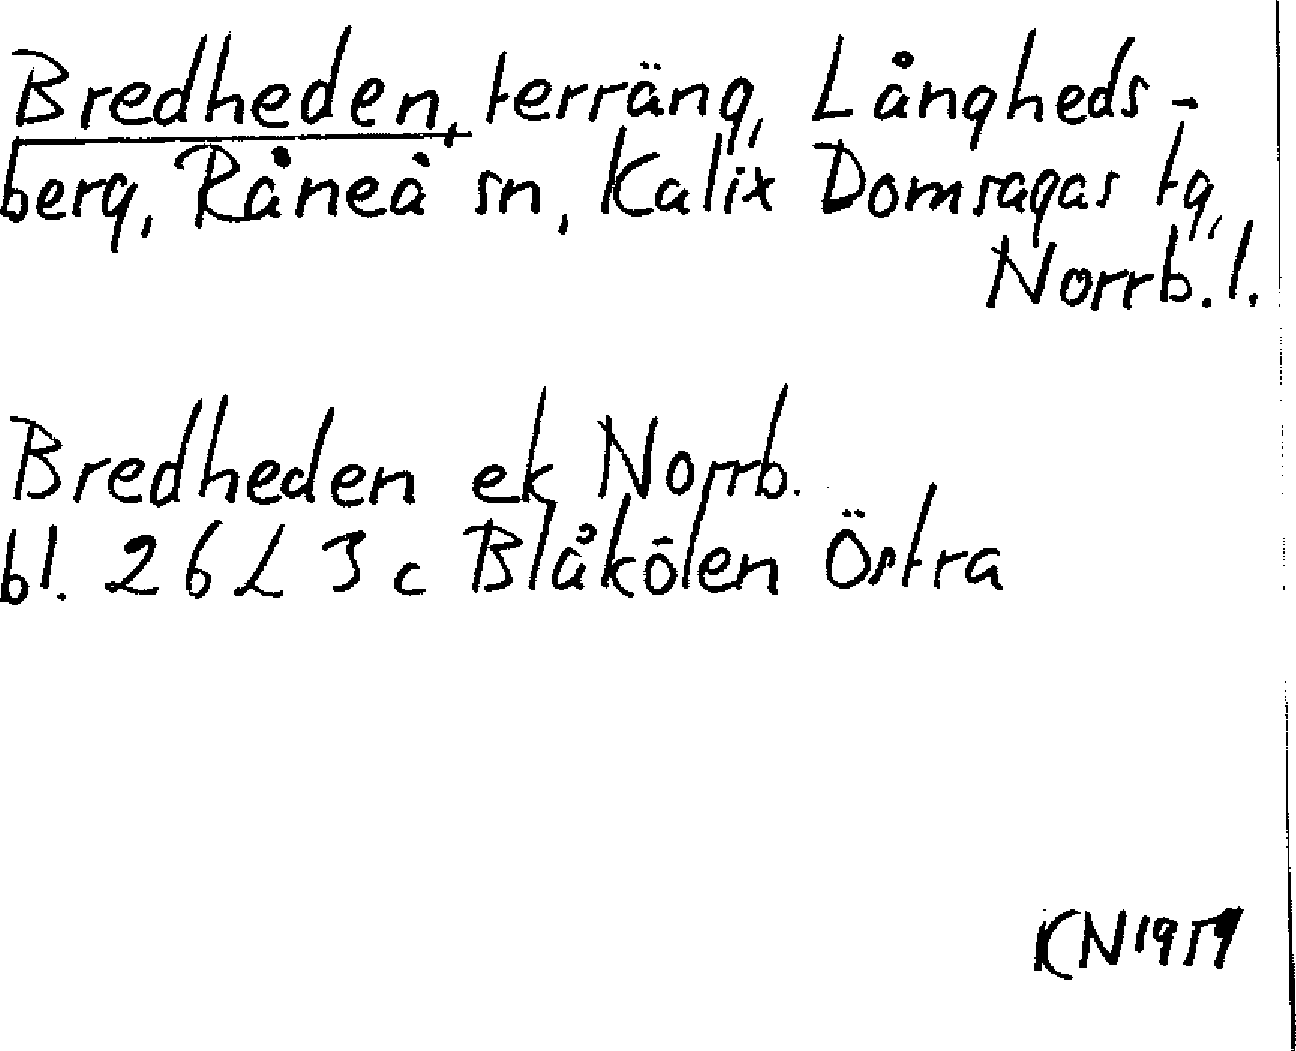 Bredheden, terräng, Långheds-
berg, Råneå sn, Kalix Domsagas tg,
Norrb. l.
Bredheden ek Norrb.
bl. 26 L 3 c Blåkölen Östra
KN